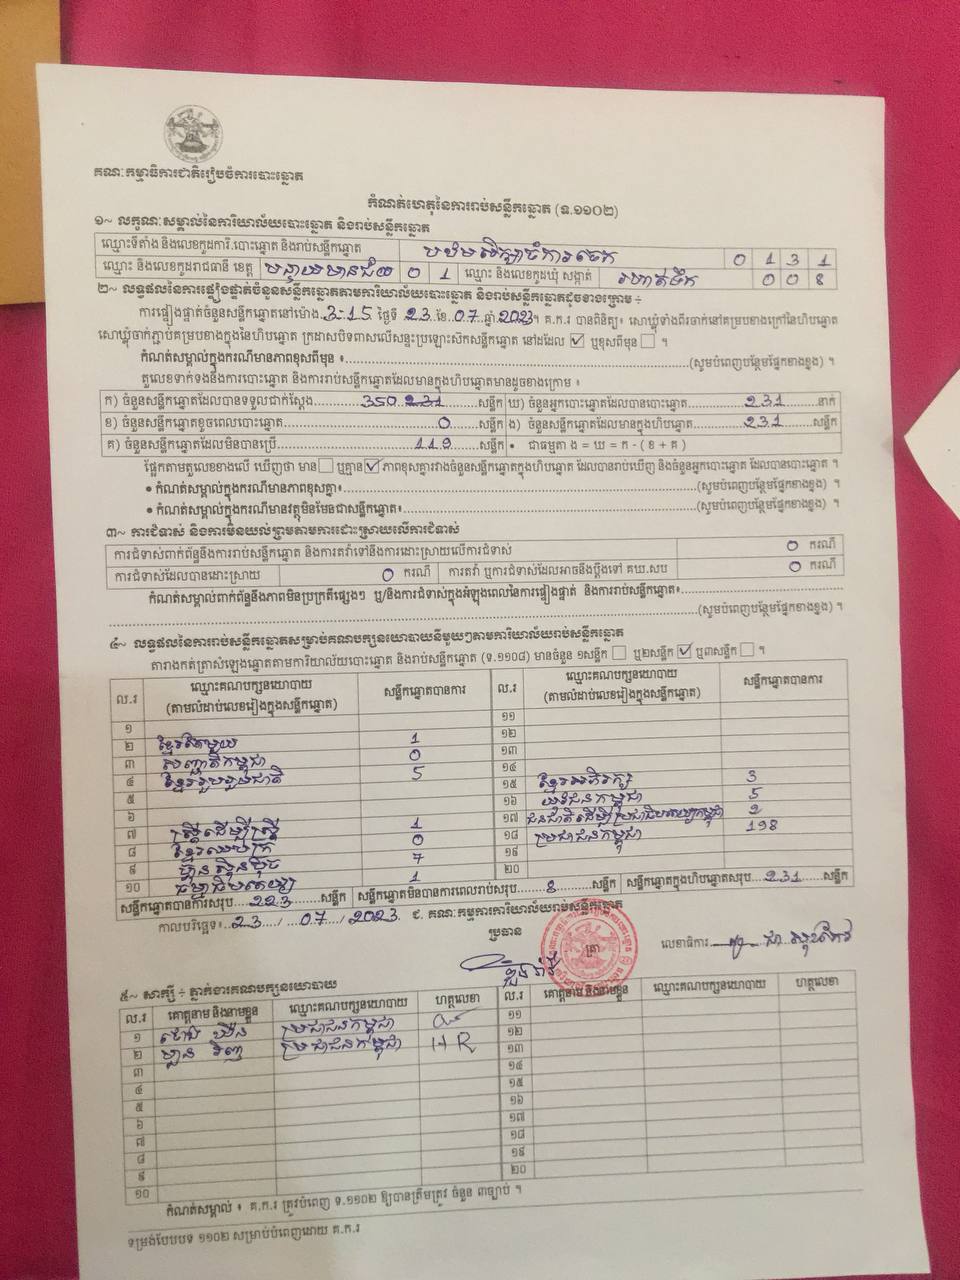 គណៈកម្មាធិការជាតិរៀបចំការបោះឆ្នោត
កំណត់ហេតុនៃការរាប់សន្លឹកឆ្នោត (ទ.១១០២)
១~ លក្ខណៈសម្គាល់នៃការិយាល័យបោះឆ្នោត និងរាប់សន្លឹកឆ្នោត
ឈ្មោះទីតាំង និងលេខកូដការិ.បោះឆ្នោត និងរាប់សន្លឹកឆ្នោត 0 1 3 1
ឈ្មោះ និងលេខកូដរាជធានី ខេត្ត បន្ទាយមានជ័យ 0 1 ឈ្មោះ និងលេខកូដឃុំ សង្កាត់ 0 0 8
២~ លទ្ធផលនៃការផ្ទៀងផ្ទាត់ចំនួនសន្លឹកឆ្នោតតាមការិយាល័យបោះឆ្នោត និងរាប់សន្លឹកឆ្នោតដូចខាងក្រោម ៖
ការផ្ទៀងផ្ទាត់ចំនួនសន្លឹកឆ្នោតនៅម៉ោង 3-15 ថ្ងៃទី 23 ខែ 07 ឆ្នាំ 2023 ។ គ.ក.រ បានពិនិត្យ៖ សោឃ្លុំទាំងពីរចាក់នៅគម្របខាងក្រៅនៃហិបឆ្នោត
សោឃ្លុំចាក់ភ្ជាប់គម្របខាងក្នុងនៃហិបឆ្នោត ក្រដាសបិទពាសលើសន្ទះប្រឡោះសិកសន្លឹកឆ្នោត នៅដដែល ☑ ឬខុសពីមុន ☐ ។
កំណត់សម្គាល់ក្នុងករណីមានភាពខុសពីមុន ៖ (សូមបំពេញបន្ថែមផ្នែកខាងខ្នង) ។
តួលេខទាក់ទងនឹងការបោះឆ្នោត និងការរាប់សន្លឹកឆ្នោតដែលមានក្នុងហិបឆ្នោតមានដូចខាងក្រោម ៖
ក) ចំនួនសន្លឹកឆ្នោតដែលបានទទួលជាក់ស្តែង 350 231 សន្លឹក ឃ) ចំនួនអ្នកបោះឆ្នោតដែលបានបោះឆ្នោត 231 នាក់
ខ) ចំនួនសន្លឹកឆ្នោតខូចពេលបោះឆ្នោត 0 សន្លឹក ង) ចំនួនសន្លឹកឆ្នោតដែលមានក្នុងហិបឆ្នោត 231 សន្លឹក
គ) ចំនួនសន្លឹកឆ្នោតដែលមិនបានប្រើ 119 សន្លឹក • ជាធម្មតា ង = ឃ = ក - ( ខ + គ )
ផ្អែកតាមតួលេខខាងលើ ឃើញថា មាន ☐ ឬគ្មាន ☑ ភាពខុសគ្នារវាងចំនួនសន្លឹកឆ្នោតក្នុងហិបឆ្នោត ដែលបានរាប់ឃើញ និងចំនួនអ្នកបោះឆ្នោត ដែលបានបោះឆ្នោត ។
• កំណត់សម្គាល់ក្នុងករណីមានភាពខុសគ្នា៖ (សូមបំពេញបន្ថែមផ្នែកខាងខ្នង) ។
• កំណត់សម្គាល់ក្នុងករណីមានវត្ថុមិនមែនជាសន្លឹកឆ្នោត៖ (សូមបំពេញបន្ថែមផ្នែកខាងខ្នង) ។
៣~ ការជំទាស់ និងការមិនយល់ព្រមតាមការដោះស្រាយលើការជំទាស់
ការជំទាស់ពាក់ព័ន្ធនឹងការរាប់សន្លឹកឆ្នោត និងការតវ៉ាទៅនឹងការដោះស្រាយលើការជំទាស់ 0 ករណី
ការជំទាស់ដែលបានដោះស្រាយ 0 ករណី ការតវ៉ា ឬការជំទាស់ដែលអាចនឹងប្តឹងទៅ គឃ.សប 0 ករណី
កំណត់សម្គាល់ពាក់ព័ន្ធនឹងភាពមិនប្រក្រតីផ្សេងៗ ឬ/និងការជំទាស់ក្នុងអំឡុងពេលនៃការផ្ទៀងផ្ទាត់ និងការរាប់សន្លឹកឆ្នោត៖
(សូមបំពេញបន្ថែមផ្នែកខាងខ្នង) ។
៤~ លទ្ធផលនៃការរាប់សន្លឹកឆ្នោតសម្រាប់គណបក្សនយោបាយនីមួយៗតាមការិយាល័យរាប់សន្លឹកឆ្នោត
តារាងកត់ត្រាសំឡេងឆ្នោតតាមការិយាល័យបោះឆ្នោត និងរាប់សន្លឹកឆ្នោត (ទ.១១០៨) មានចំនួន ១សន្លឹក ☐ ឬ២សន្លឹក ☑ ឬ៣សន្លឹក ☐ ។
ល.រ ឈ្មោះគណបក្សនយោបាយ (តាមលំដាប់លេខរៀងក្នុងសន្លឹកឆ្នោត) សន្លឹកឆ្នោតបានការ ល.រ ឈ្មោះគណបក្សនយោបាយ (តាមលំដាប់លេខរៀងក្នុងសន្លឹកឆ្នោត) សន្លឹកឆ្នោតបានការ
១ ១១
២ ខ្មែរតែមួយ 1 ១២
៣ សញ្ជាតិកម្ពុជា 0 ១៣
៤ ខ្មែររួបរួមជាតិ 5 ១៤
៥ ១៥ ខ្មែរអភិរក្ស 3
៦ ១៦ យុវជនកម្ពុជា 5
៧ ស្ត្រីដើម្បីស្ត្រី 1 ១៧ ជនជាតិដើមប្រជាធិបតេយ្យកម្ពុជា 2
៨ 0 ១៨ ប្រជាជនកម្ពុជា 198
៩ ហ៊្វុនស៊ិនប៉ិច 7 ១៩
១០ ធម្មាធិបតេយ្យ 1 ២០
សន្លឹកឆ្នោតបានការសរុប 223 សន្លឹក សន្លឹកឆ្នោតមិនបានការពេលរាប់សរុប 8 សន្លឹក សន្លឹកឆ្នោតក្នុងហិបឆ្នោតសរុប 231 សន្លឹក
កាលបរិច្ឆេទ៖ 23 / 07 / 2023 ជ. គណៈកម្មការការិយាល័យរាប់សន្លឹកឆ្នោត
ប្រធាន ត្រា លេខាធិការ
៥~ សាក្សី ៖ ភ្នាក់ងារគណបក្សនយោបាយ
ល.រ គោត្តនាម និងនាមខ្លួន ឈ្មោះគណបក្សនយោបាយ ហត្ថលេខា ល.រ គោត្តនាម និងនាមខ្លួន ឈ្មោះគណបក្សនយោបាយ ហត្ថលេខា
១ ប្រជាជនកម្ពុជា ១១
២ ប្រជាជនកម្ពុជា HR ១២
៣ ១៣
៤ ១៤
៥ ១៥
៦ ១៦
៧ ១៧
៨ ១៨
៩ ១៩
១០ ២០
កំណត់សម្គាល់ ៖ គ.ក.រ ត្រូវបំពេញ ទ.១១០២ ឱ្យបានត្រឹមត្រូវ ចំនួន ៣ច្បាប់ ។
ទម្រង់បែបបទ ១១០២ សម្រាប់បំពេញដោយ គ.ក.រ